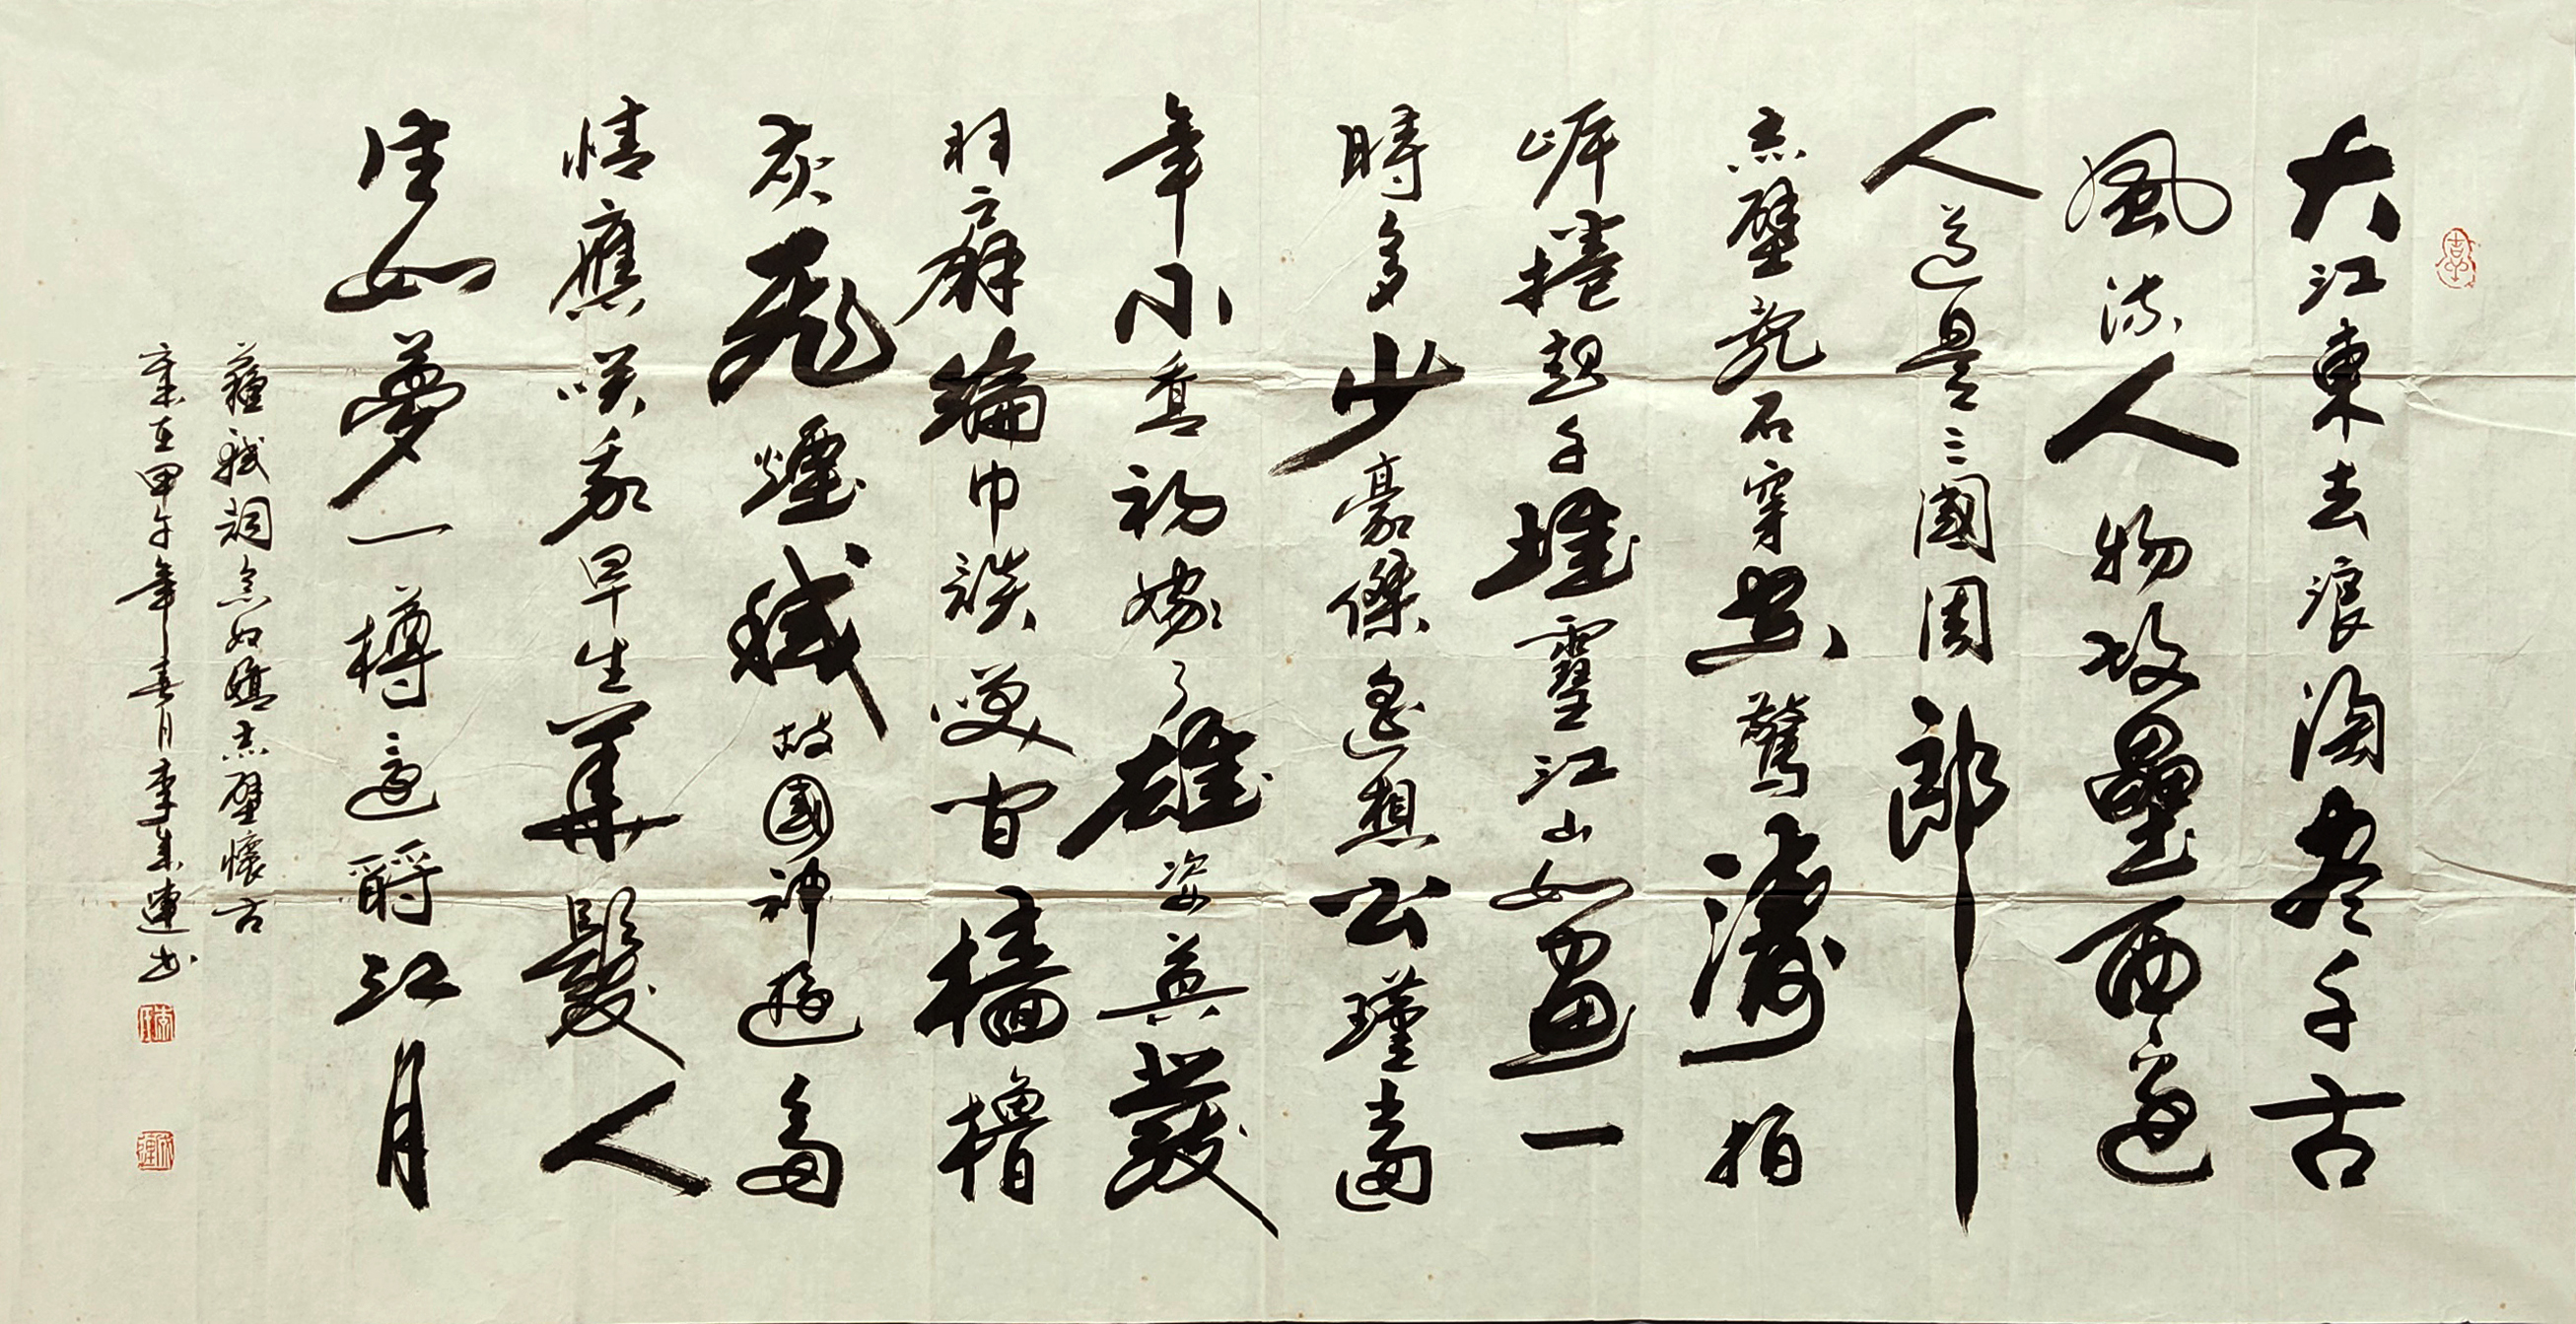 大江東去浪淘盡千古
風流人物故壘西邊
人道是三國周郎
赤壁亂石穿空驚濤拍
岸捲起千堆雪江山如畫一
時多少豪傑遙想公瑾當
年小喬初嫁了雄姿英發
羽扇綸巾談笑間檣櫓
灰飛煙滅故國神遊多
情應笑我早生華髮人
生如夢一樽還酹江月
蘇軾詞念奴嬌赤壁懷古
歲在甲午年春月李成連书